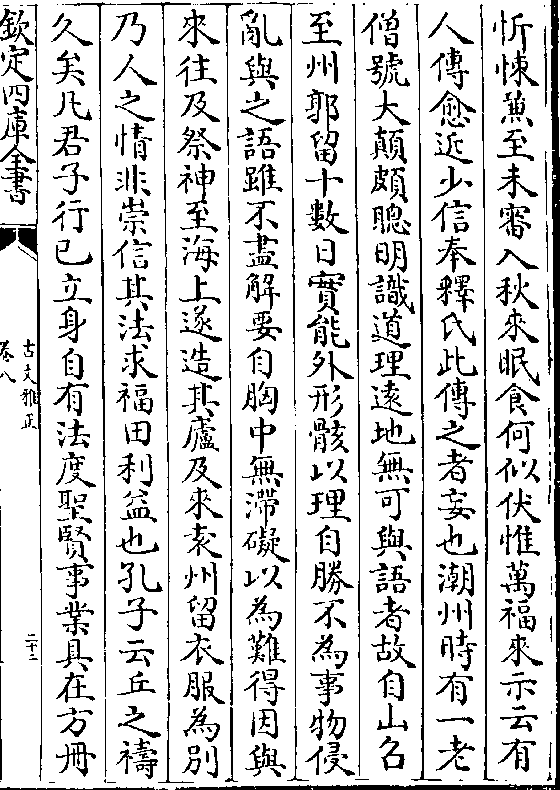 忻悚兼至未審入秋來眠食何似伏惟萬福來示云有
人傳愈近少信奉釋氏此傳之者妄也潮州時有一老
僧號大顛頗聰明識道理逺地無可與語者故自山召
至州郭留十數日實能外形骸以理自勝不為事物侵
亂與之語雖不盡解要自胸中無滯礙以為難得因與
來往及祭神至海上遂造其廬及來袁州留衣服為別
乃人之情非崇信其法求福田利益也孔子云丘之禱
久矣凡君子行已立身自有法度聖賢事業具在方冊
欽定四庫全書
古文雅正
卷八
二十二